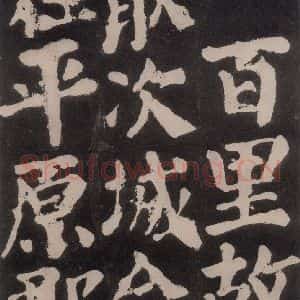 百里故
厭次城今
在平原郡
Shufawang.cn